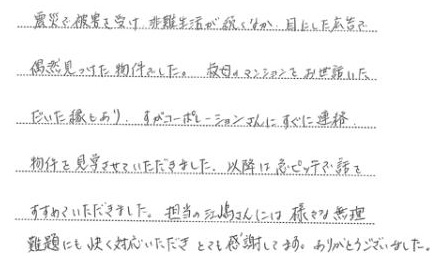 震災で被害を受け、非難生活が続くなか、目にした広告で
偶然見つけた物件でした。叔母のマンションをお世話いた
だいた縁もあり、すがコーポレーションさんにすぐに連絡、
物件を見学させていただきました。以降は急ピッチで話を
すすめていただきました。担当の江嶋さんには様々な無理
難題にも快く対応いただきとても感謝してます。ありがとうございました。